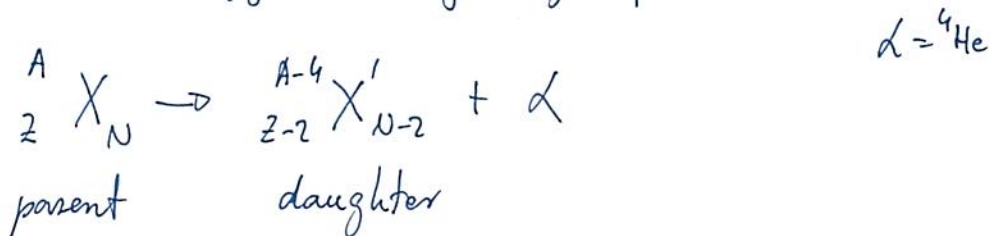 α = ⁴He
ᴬ_Z X_N → ᴬ⁻⁴_Z-2 X'_N-2 + α
parent daughter